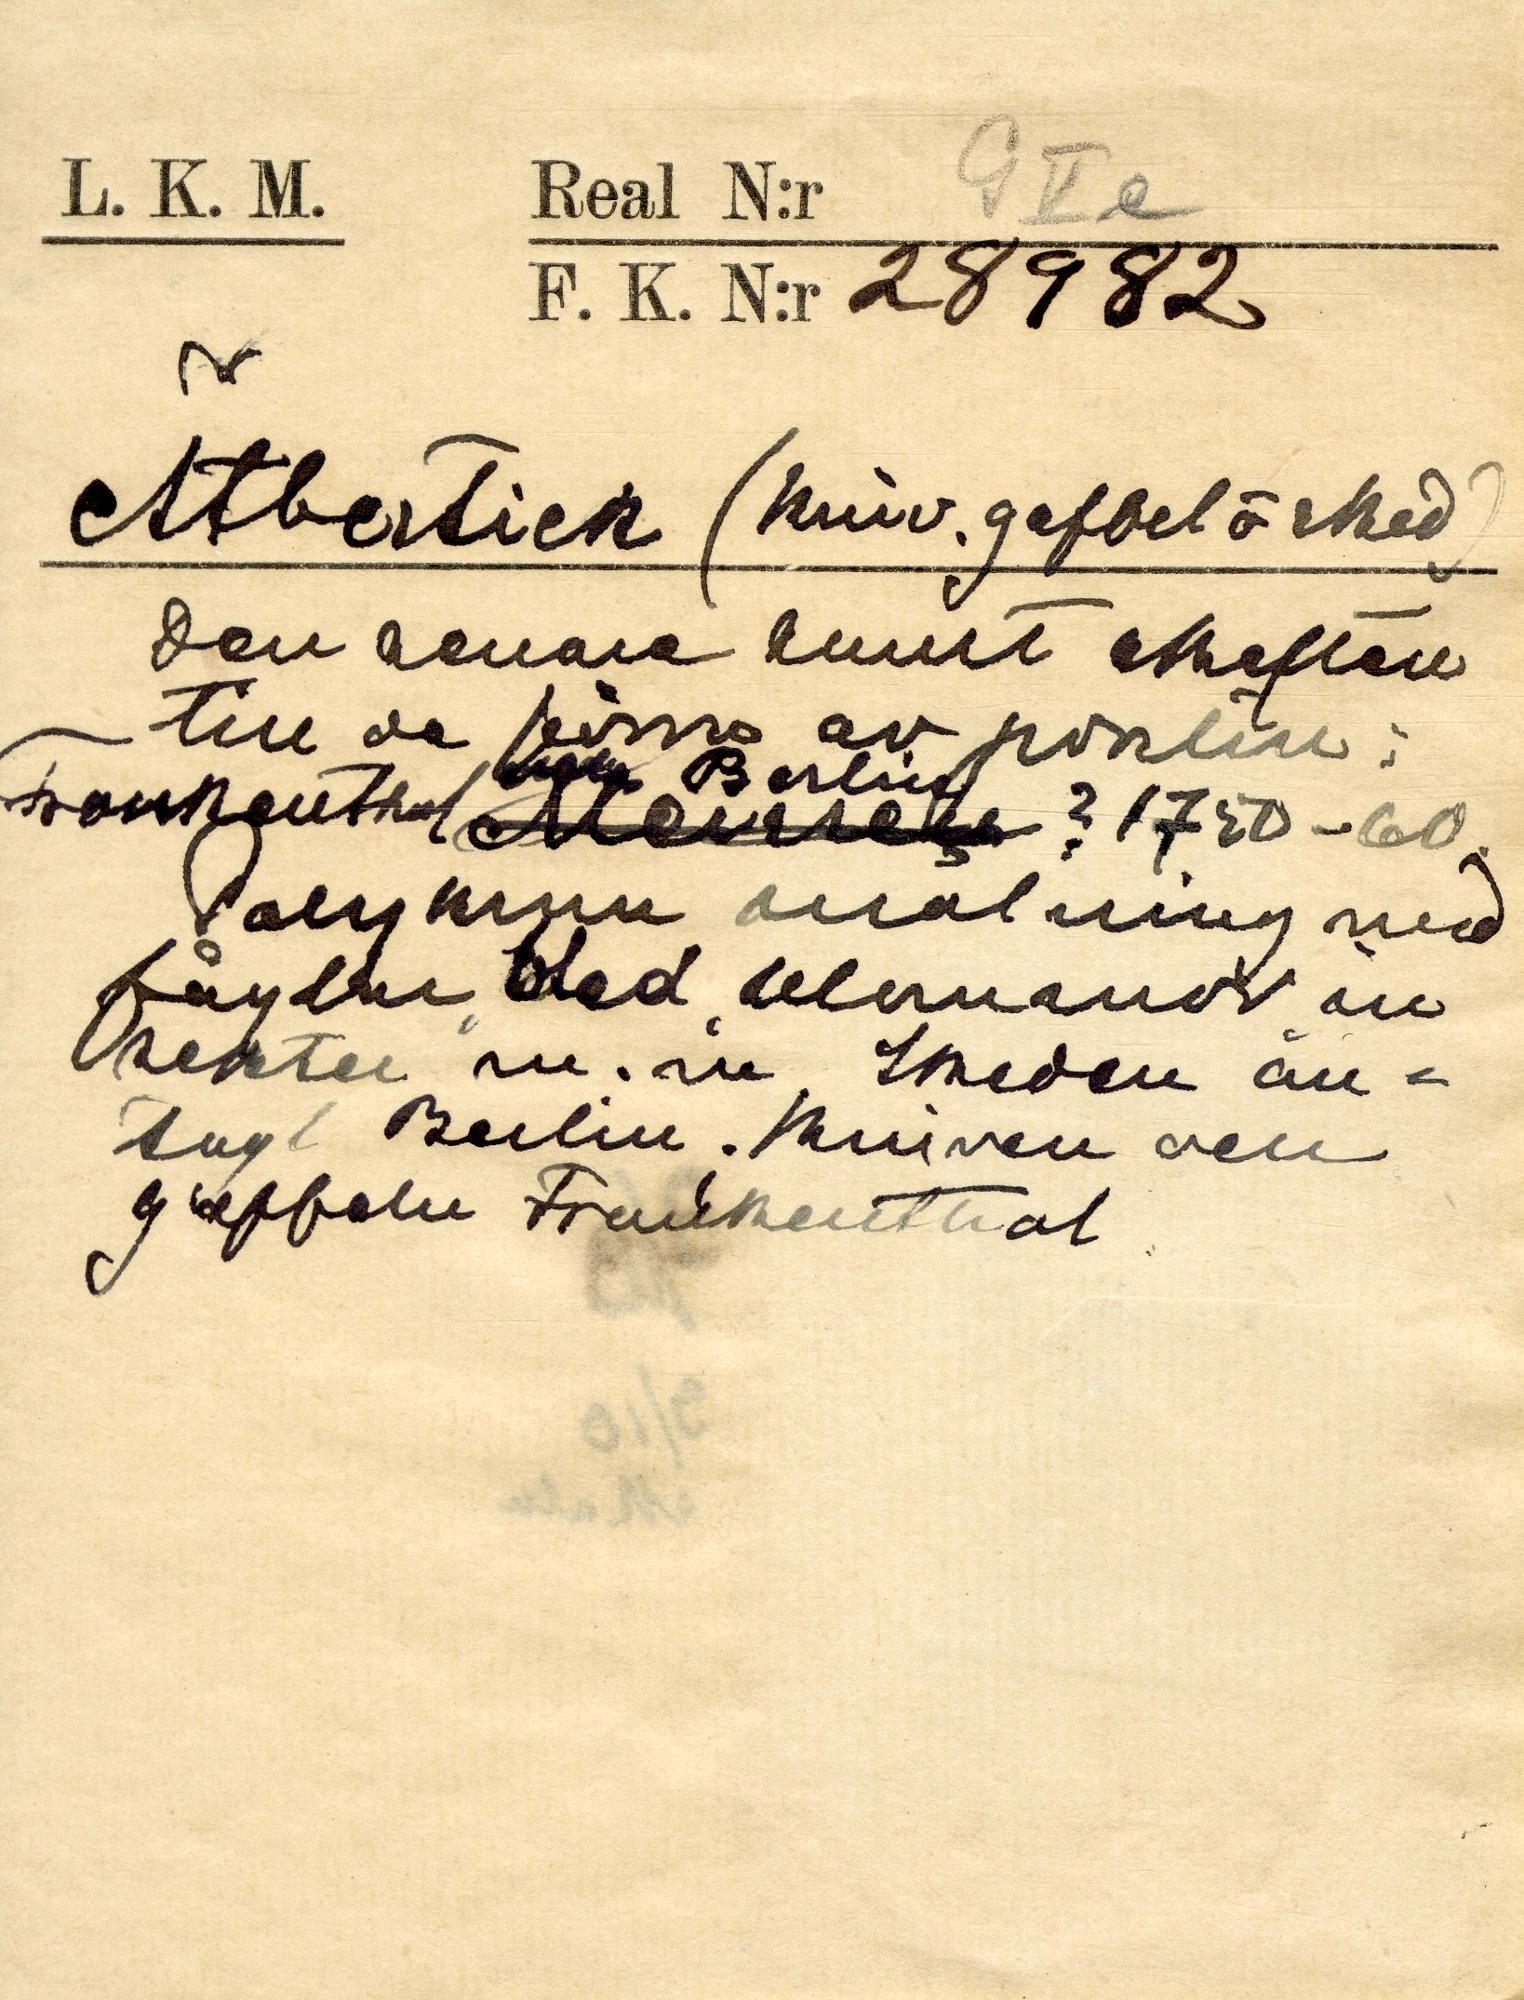 L. K. M.
Real N:r G V e
F. K. N:r 28982
Ätbestick (kniv, gaffel o sked)
Den senare samt skaften
till de förra av porslin:
Frankenthal Berlin
Meissen ? 1750-60.
Polykrom målning med
fåglar, blad, blommor, in
sekter m. m. Skeden an-
tagl Berlin. Kniven och
gaffeln Frankenthal.